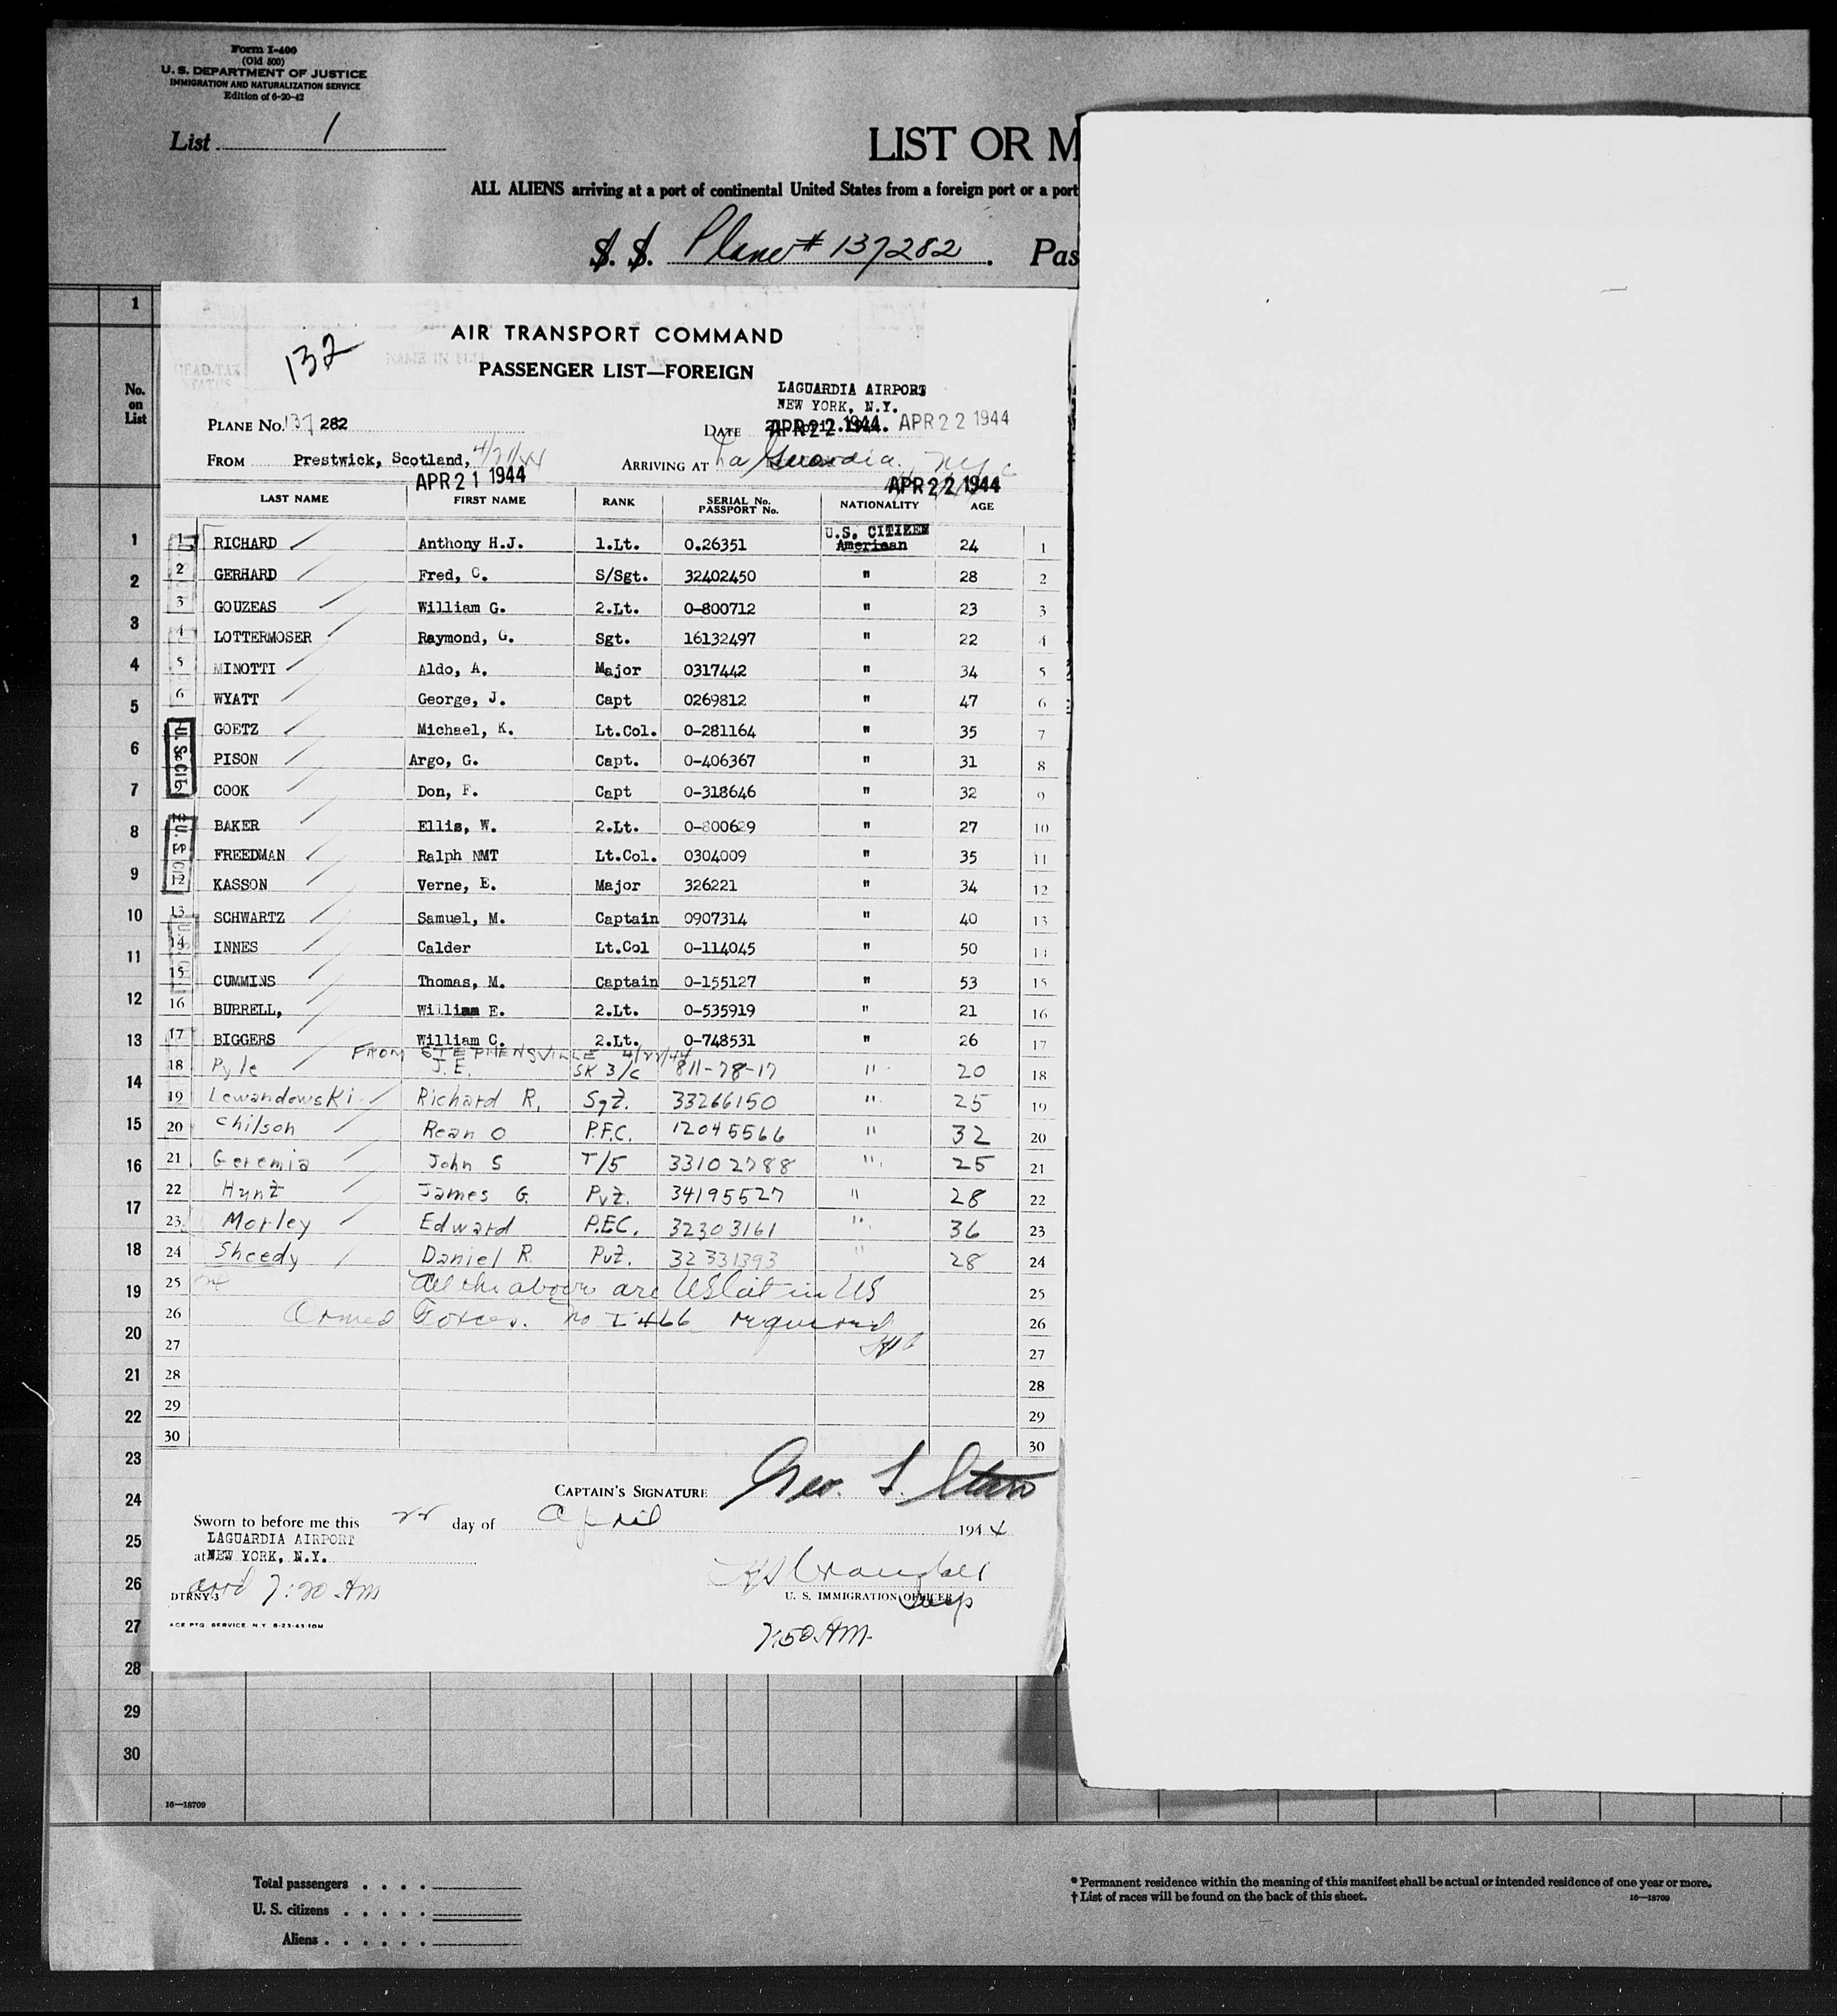 Form I-400
(Old 500)
U. S. DEPARTMENT OF JUSTICE
IMMIGRATION AND NATURALIZATION SERVICE
Edition of 6-20-42
List 1
LIST OR M
ALL ALIENS arriving at a port of continental United States from a foreign port or a port
S. S. Plane # 137282. Pas
132
AIR TRANSPORT COMMAND
PASSENGER LIST—FOREIGN
NAME IN FULL
HEAD-TAX
STATUS
LAGUARDIA AIRPORT
NEW YORK, N.Y.
PLANE No. 137 282
DATE APR 22 1944. APR 22 1944
FROM Prestwick, Scotland, 4/21/44
ARRIVING AT La Guardia, NYC
APR 21 1944
APR 22 1944
No. on List
LAST NAME FIRST NAME RANK SERIAL No. PASSPORT No. NATIONALITY AGE
U.S. CITIZEN
1 RICHARD Anthony H.J. 1.Lt. 0.26351 American 24 1
2 GERHARD Fred, C. S/Sgt. 32402450 " 28 2
3 GOUZEAS William G. 2.Lt. 0-800712 " 23 3
4 LOTTERMOSER Raymond, G. Sgt. 16132497 " 22 4
5 MINOTTI Aldo, A. Major 0317442 " 34 5
6 WYATT George, J. Capt 0269812 " 47 6
GOETZ Michael, K. Lt.Col. 0-281164 " 35 7
PISON Argo, G. Capt. 0-406367 " 31 8
COOK Don, F. Capt 0-318646 " 32 9
BAKER Ellis, W. 2.Lt. 0-800629 " 27 10
FREEDMAN Ralph NMT Lt.Col. 0304009 " 35 11
12 KASSON Verne, E. Major 326221 " 34 12
13 SCHWARTZ Samuel, M. Captain 0907314 " 40 13
14 INNES Calder Lt.Col 0-114045 " 50 14
15 CUMMINS Thomas, M. Captain 0-155127 " 53 15
16 BURRELL, William E. 2.Lt. 0-535919 " 21 16
17 BIGGERS William C. 2.Lt. 0-748531 " 26 17
FROM STEPHENSVILLE 4/22/44
18 Pyle J.E. SK 3/c 811-78-17 " 20 18
19 Lewandowski Richard R. Sgt. 33266150 " 25 19
20 Chilson Rean O P.F.C. 12045566 " 32 20
21 Geremia John S T/5 33102788 " 25 21
22 Hunt James G. Pvt. 34195527 " 28 22
23 Morley Edward P.F.C. 32303161 " 36 23
24 Sheedy Daniel R. Pvt. 32331393 " 28 24
25 All the above are US Cit in US 25
26 Armed Forces. No I 466 required 26
27 27
28 28
29 29
30 30
U. S. CIT.
CAPTAIN'S SIGNATURE Geo. S.
Sworn to before me this 22 day of April 1944
LAGUARDIA AIRPORT
at NEW YORK, N.Y.
arrd 7:20 AM
DTRNY-3
Crandall
U. S. IMMIGRATION OFFICER
Insp
ACE PTG. SERVICE, N.Y. 8-23-43-10M
7:50 AM.
1
1
2
3
4
5
6
7
8
9
10
11
12
13
14
15
16
17
18
19
20
21
22
23
24
25
26
27
28
29
30
16—18709
Total passengers
U. S. citizens
Aliens
* Permanent residence within the meaning of this manifest shall be actual or intended residence of one year or more.
† List of races will be found on the back of this sheet.
16—18709